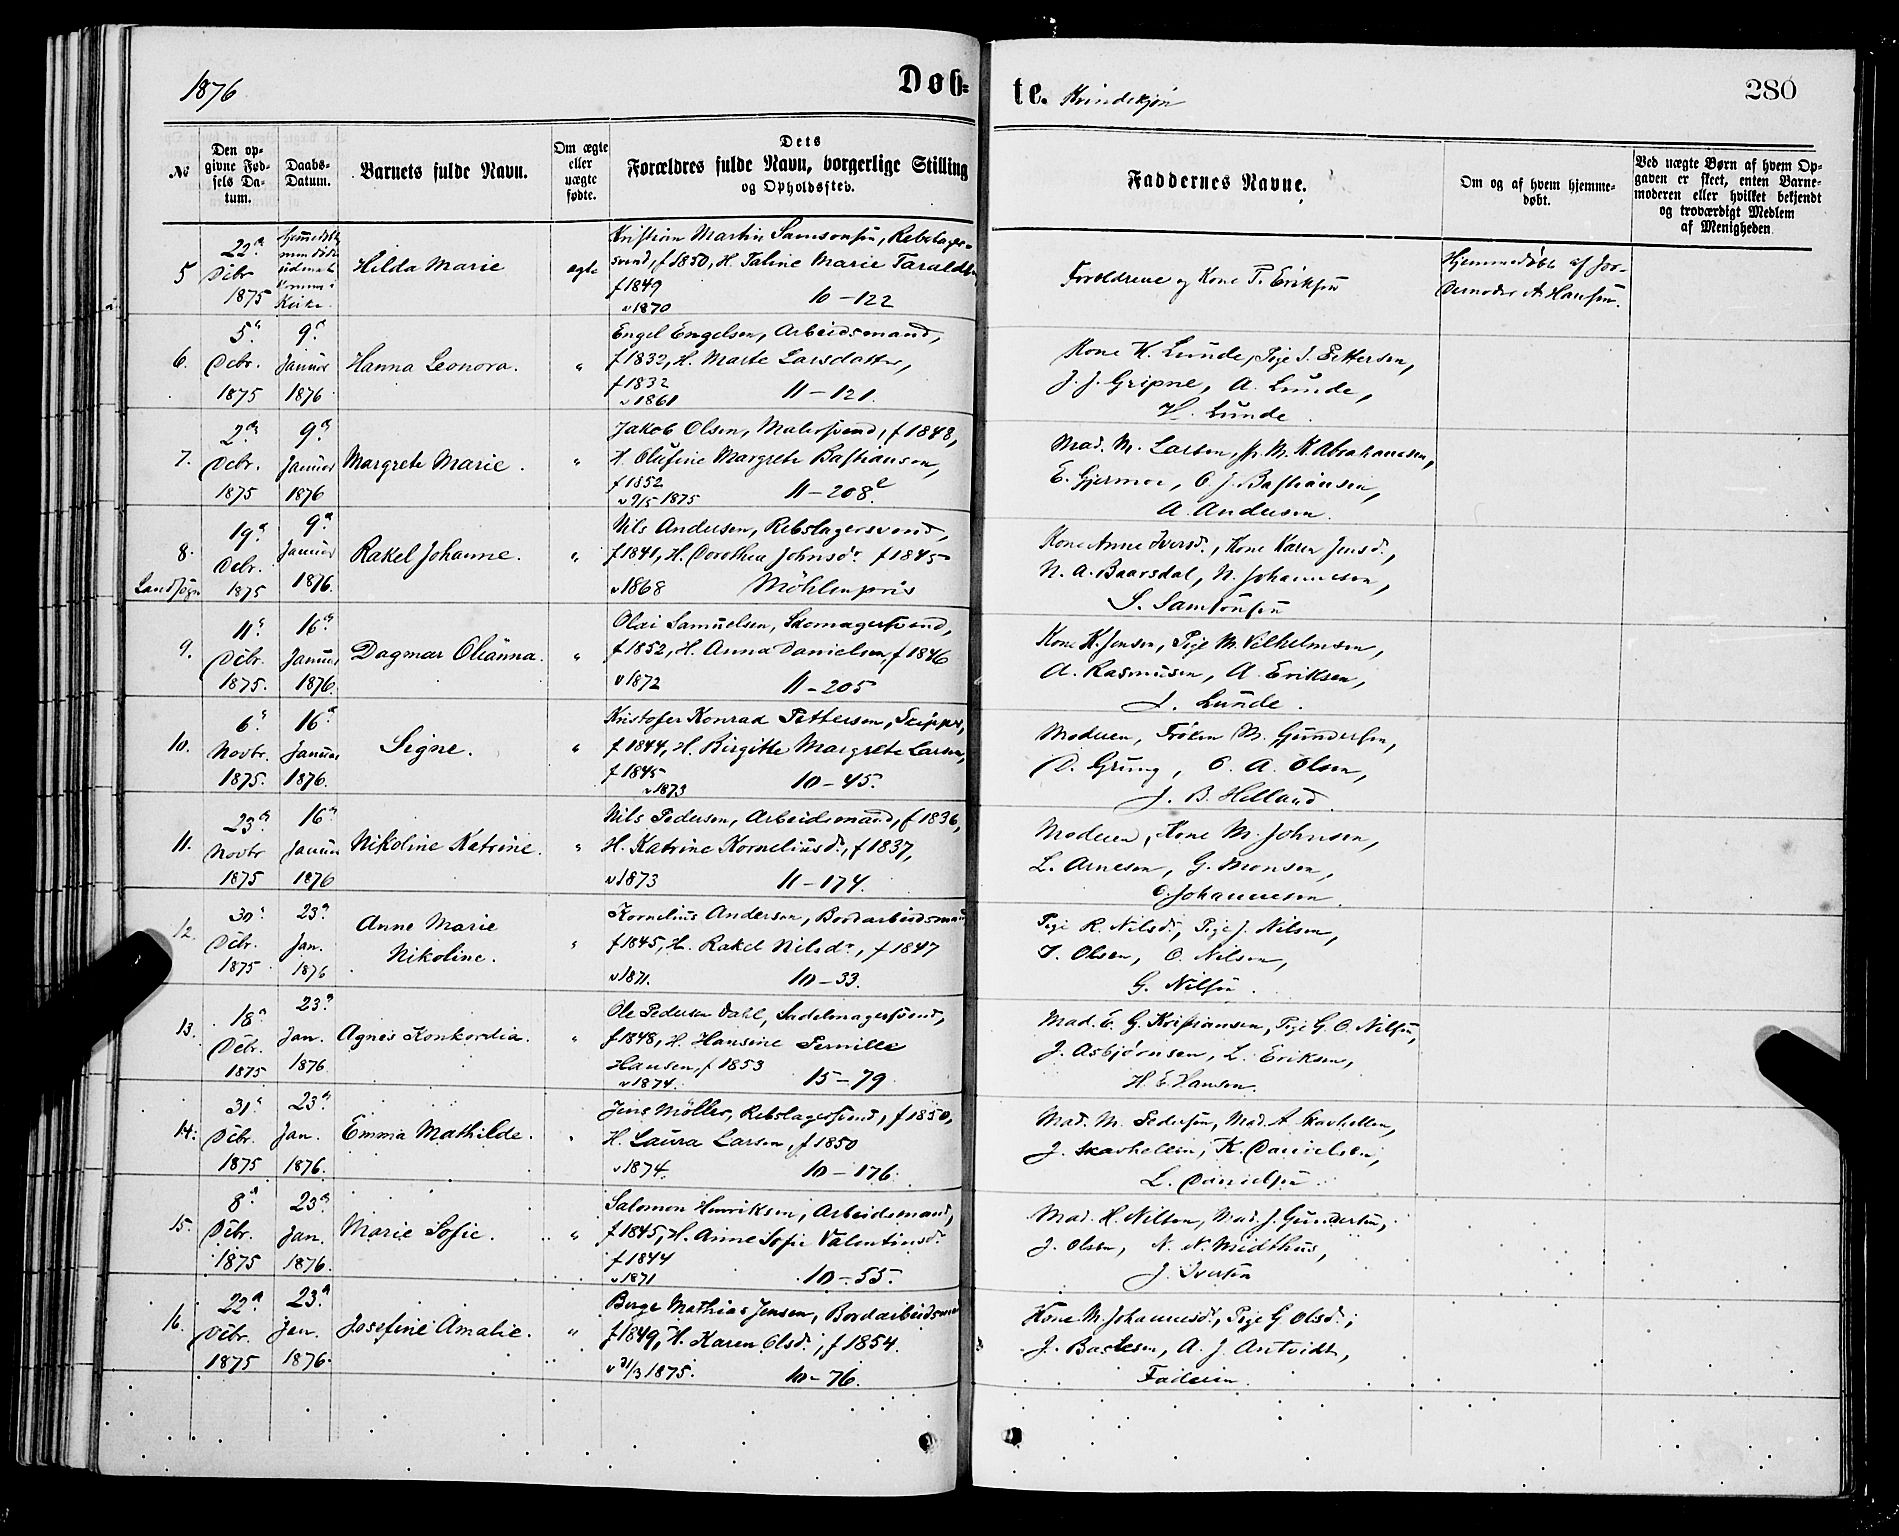 1876
Døb-
te. Kvindekjøn
280
No
Den op-
givne Fød-
sels Da-
tum.
Daabs-
Datum.
Barnets fulde Navn.
Om ægte
eller
uægte
fødte.
Dets
Forældres fulde Navn, borgerlige Stilling
og Opholdssted.
Faddernes Navne.
Om og af hvem hjemme-
døbt.
Ved uægte Børn af hvem Op-
gaven er skeet, enten Barne-
moderen eller hvilket bekjendt
og troværdigt Medlem
af Menigheden.
5
22de
Decbr
1875
Hilda Marie
ægte
Kristian Martin Samsonsen, Rebslager-
svend, f 1850, H. Taline Marie Taraldsen
f 1849
v 1870 10-122
Forældrene og Kone P. Eriksen
Hjemmedøbt af Jor-
demoder A Hansen.
6.
5te
Decbr.
1875
9de
Januar
1876
Hanna Leonora.
"
Engel Engelsen, Arbeidsmand,
f 1832, H. Marte Larsdatter,
f 1832
v 1861 11-121.
Kone K. Lunde, Pige I. Pettersen,
J. J. Gripne, A. Lunde,
H. Lunde.
7.
2den
Decbr.
1875
9de
Januar
1876
Margrete Marie.
"
Jakob Olsen, Malersvend, f 1848,
H. Olufine Margrete Bastiansen,
f 1852
v 9/5 1875 11-208e
Mad. M. Larsen, Jfr. M. K. Abrahamsen,
E. Gjermoe, O. J. Bastiansen,
A. Andersen.
8.
Landsogn
19de
Decbr.
1875
9de
Januar
1876.
Rakel Johanne.
"
Nils Andersen, Rebslagersvend,
f 1841, H. Dorothea Johnsdr. f 1845
v 1868 Möhlenpris
Kone Anne Iversd., Kone Karen Jensd.,
N. A. Baarsdal, N. Johannesen,
S. Samsonsen
9.
11te
Decbr.
1875.
16de
Januar
1876.
Dagmar Olianna.
"
Olai Samuelsen, Skomagersvend,
f 1852, H. Anna Danielsen, f 1846
v 1872 11-205
Kone K. Jensen, Pige M. Vilhelmsen,
A. Rasmusen, A. Eriksen,
J. Lunde.
10.
6te
Novbr.
1875.
16de
Januar
1876.
Signe.
"
Kristofer Konrad Pettersen, Skipper,
f 1844, H. Birgitte Margrete Larsen,
f 1845
v 1873 10-45.
Moderen, Frøken M. Gundersen,
D. Grung, O. A. Olsen,
J. B. Helland.
11.
23de
Novbr
1875
16de
Januar
1876
Nikoline Katrine.
"
Nils Pedersen, Arbeidsmand, f 1836,
H. Katrine Korneliusd., f 1837,
v 1873 11-174.
Moderen, Kone M. Johnsen,
L. Arnesen, G. Monsen,
O. Johannesen.
12.
30te
Decbr.
1875
23de
Jan.
1876
Anne Marie
Nikoline.
"
Kornelius Andersen, Bordarbeidsmand
f 1845, H. Rakel Nilsdr., f 1847
v 1871. 10-33.
Pige R. Nilsdr., Pige J. Nilsen,
T. Olsen, O. Nilsen,
G. Nilsen.
13.
18de
Decbr.
1875
23de
Jan.
1876
Agnes Konkordia.
"
Ole Pedersen Dahl, Sadelmagersvend,
f 1848, H. Hansine Pernille
Hansen, f 1853
v 1874. 15-79
Mad. E. G. Kristiansen, Pige G. O. Nilsen,
J. Asbjørnsen, L. Eriksen,
H. E. Hansen.
14.
31te
Decbr.
1875
23de
Jan.
1876.
Emma Mathilde.
"
Jens Möller, Rebslagersvend, f 1850,
H. Laura Larsen, f 1850
v 1874. 10-176.
Mad. M. Pedersen, Mad. A. Skavhellen,
J. Skavhellen, K. Danielsen,
L. Danielsen.
15.
8de
Decbr.
1875
23de
Jan.
1876.
Marie Sofie.
"
Salomon Henriksen, Arbeidsmand,
f 1845, H. Anne Sofie Valentinsd.
f 1844
v 1871 10-55.
Mad. H. Nilsen, Mad. J. Gundersen,
J. Olsen, N. N. Midthus,
J. Iversen
16.
22de
Decbr.
1875
23de
Jan.
1876.
Josefine Amalie.
"
Berge Mathias Jensen, Bordarbeidsmand
f 1849, H. Karen Olsd., f 1854.
v 31/3 1875. 10-76.
Kone M. Johannesd., Pige G. Olsd.,
J. Bastesen, A. J. Antvidt,
Faderen.